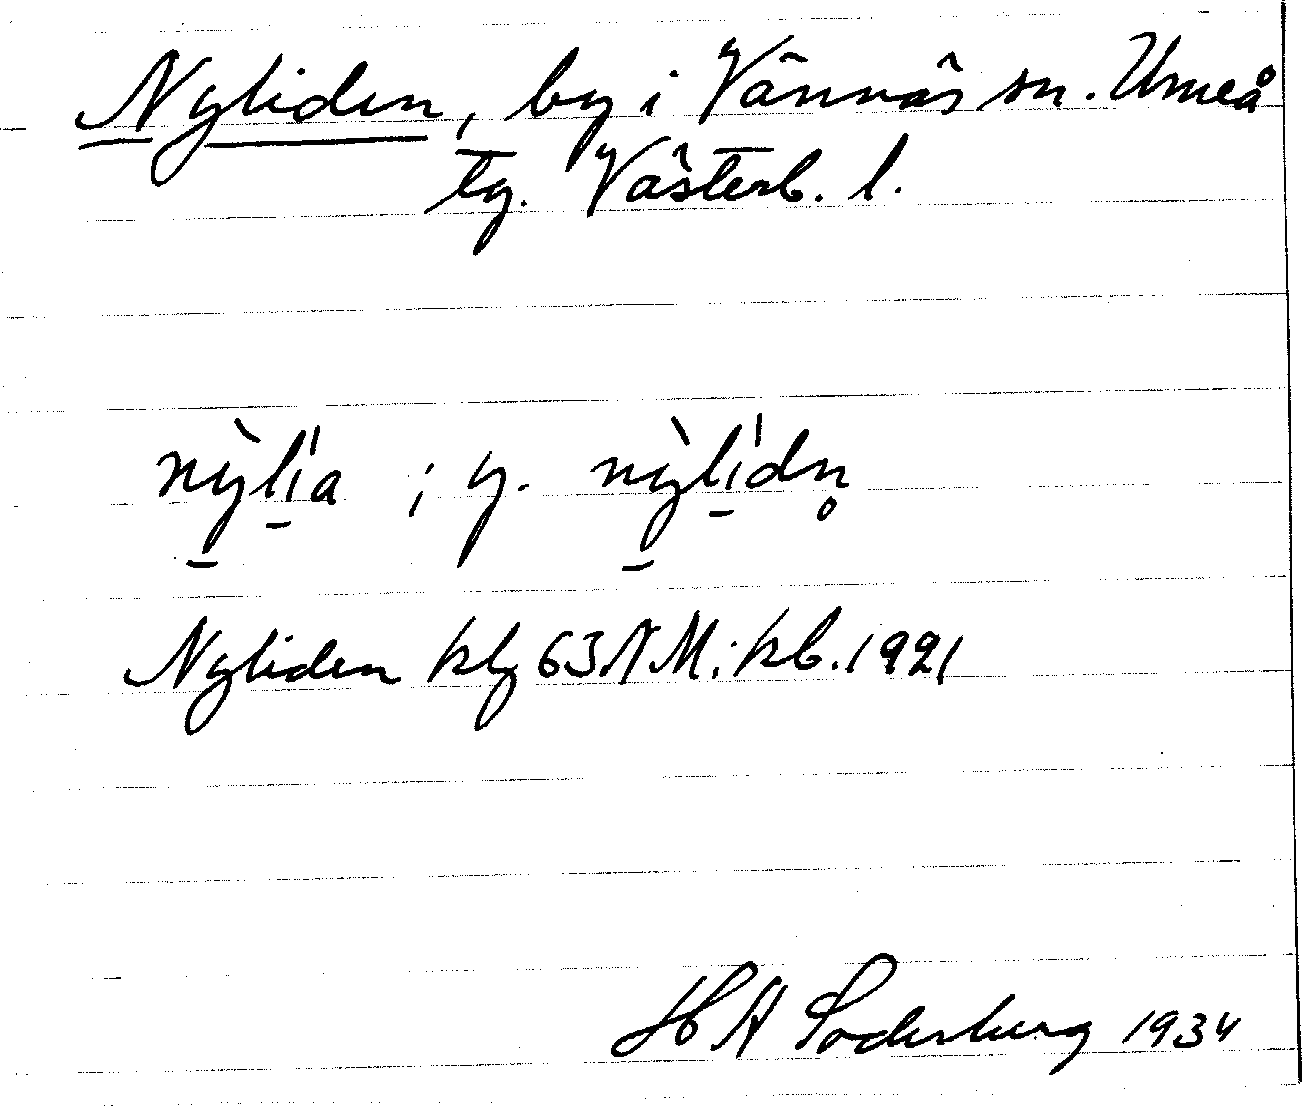 Nyliden, by i Vännäs sn. Umeå
tg. Västerb. l.
nỳ̱li̱̍a ; y. nỳ̱li̱̍dn̥
Nyliden kbg 63 NM; kb. 1921
H A Söderberg 1934